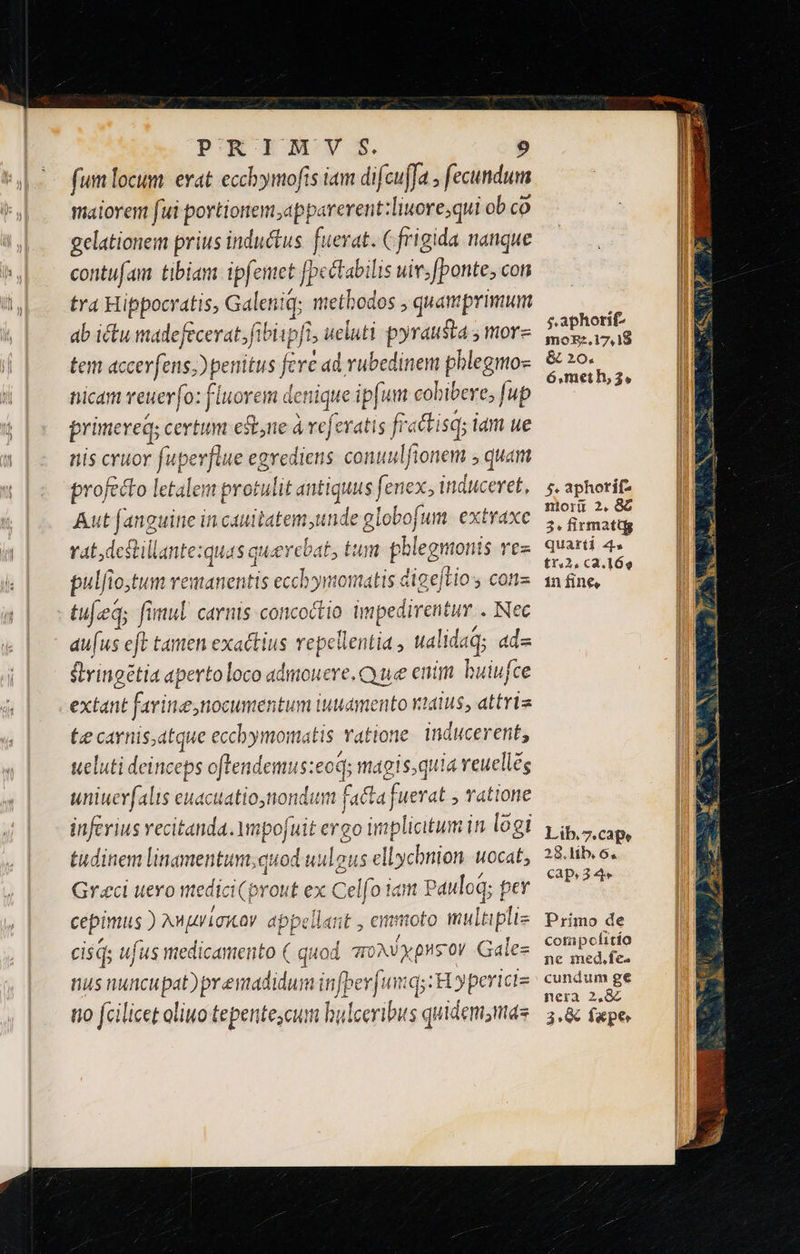 PRIMVS. 9
ſum locum erat ecchymoſis iam diſcuſſa, ſecundum
maiorem ſui portionem, apparerent: liuore, qui ob cō
gelationem prius inductus fuerat. (frigida nanque
contuſam tibiam ipſemet ſpectabilis uir, ſponte, con
tra Hippocratis, Galeniq; methodos, quamprimum
ab ictu madefecerat, ſibiipſi, ueluti pyrausta, mor=
tem accerſens,) penitus ferè ad rubedinem phlegmo=
nicam reuerſo: fluorem denique ipſum cohibere, ſup
primereq; certum est, ne à reſeratis fractisq; iam ue
nis cruor ſuperflue egrediens conuulſionem, quam
profecto letalem protulit antiquus ſenex, induceret.
Aut ſanguine in cauitatem, unde globoſum extraxe
rat, destillante: quas quærebat, tum phlegmonis re=
pulſio, tum remanentis ecchymomatis digeſtio, con=
tuſæq; ſimul carnis concoctio impedirentur. Nec
auſus eſt tamen exactius repellentia, ualidaq; ad=
ſtringētia aperto loco admouere. Quæ enim huiuſce
extant farinæ, nocumentum iuuamento maius, attri=
tæ carnis, atque ecchymomatis ratione inducerent,
ueluti deinceps oſtendemus: eoq; magis, quia reuellēs
uniuerſalis euacuatio, nondum facta fuerat, ratione
inferius recitanda. Impoſuit ergo implicitum in lōgi
tudinem linamentum, quod uulgus ellychnion uocat,
Græci uero medici (prout ex Celſo iam Pauloq; per
cepimus) λημνίσκον appellant, emmoto multipli=
cisq; uſus medicamento (quod πολύχρηστον Gale=
nus nuncupat) præmadidum inſperſumq;: Hyperici=
no ſcilicet oliuo tepente, cum hulceribus quidem, ma=
5. aphoriſ-
moꝝ. 17, 18
& 20.
6. meth. 3.
5. aphoriſ=
morū 2, &
3. firmatq;
quarti 4.
tr. 2, ca. 16.
in fine.
Lib. 7. cap.
28. lib. 6.
cap. 34.
Primo de
compoſitio
ne med. ſe-
cundum ge
nera 2, &
3. & ſæpe.